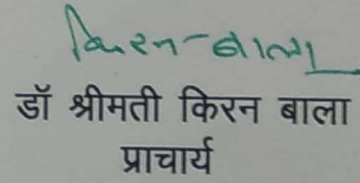 किरन-बाला
डॉ श्रीमती किरन बाला
प्राचार्य